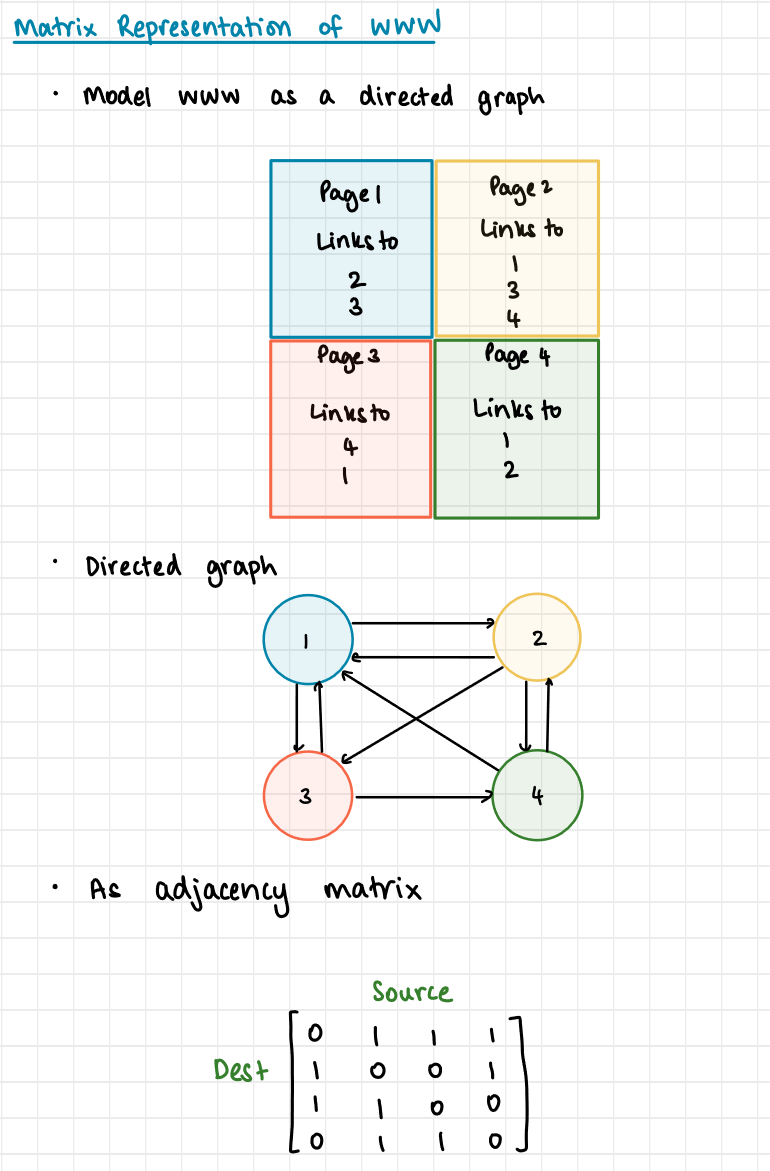 Matrix Representation of WWW
• Model WWW as a directed graph
Page 1
Links to
2
3
Page 2
Links to
1
3
4
Page 3
Links to
4
1
Page 4
Links to
1
2
• Directed graph
1
2
3
4
• As adjacency matrix
Source
Dest
0 1 1 1
1 0 0 1
1 1 0 0
0 1 1 0